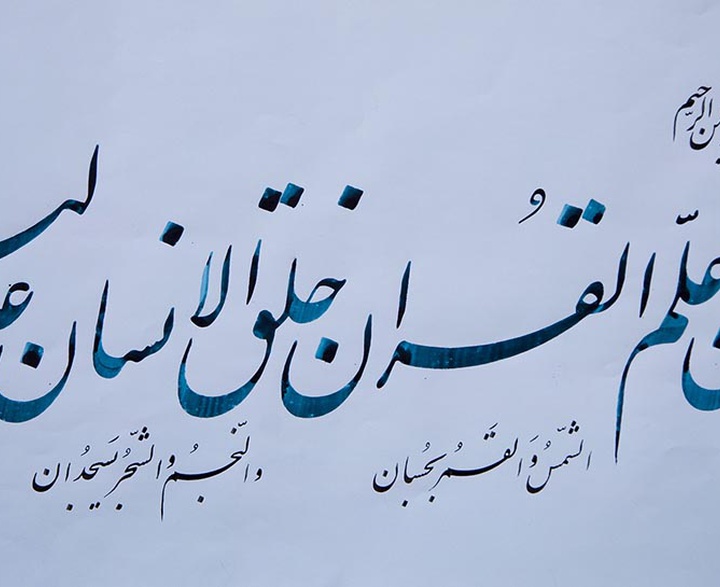 الرحیم
علّم القران خلق الانسان
الشّمسُ وَالقَمر بحُسبان
والنّجمُ والشّجرُ یَسجُدان